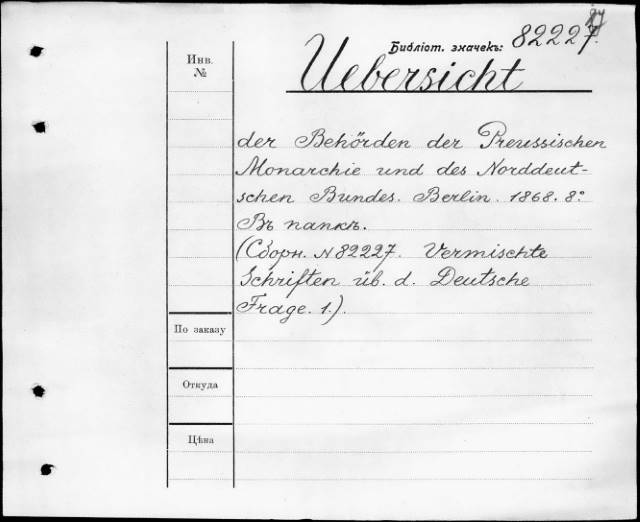 Библіот. значекъ: 82227.
Инв.
№
Uebersicht
der Behörden der Preussischen
Monarchie und des Norddeut-
schen Bundes. Berlin. 1868. 8º
Въ папкѣ.
(Сборн. N 82227. Vermischte
Schriften üb. d. Deutsche
Frage. 1.).
По заказу
Откуда
Цѣна